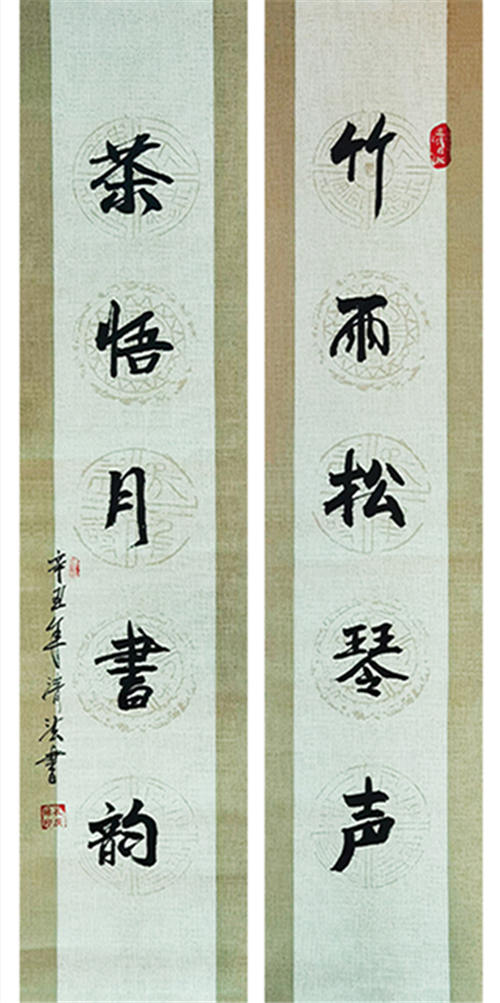 竹雨松琴声
茶悟月书韵
辛丑年清法书